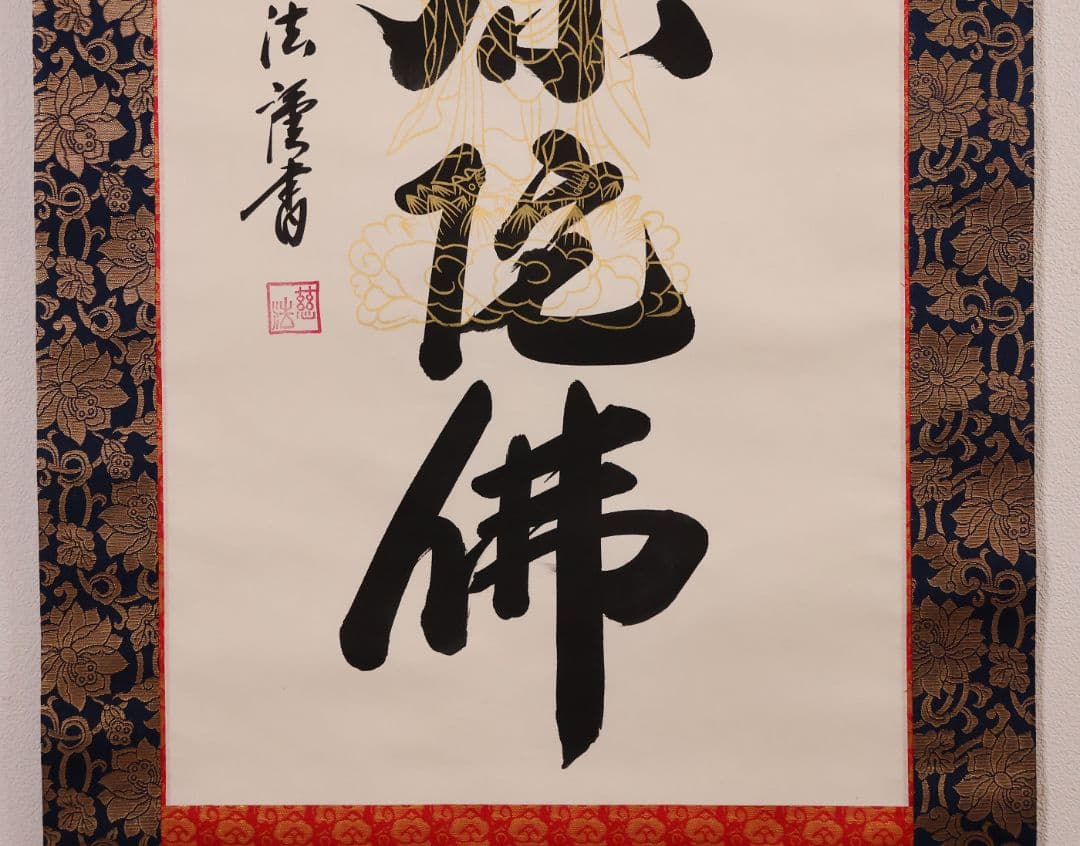 陀佛
法書
慈法